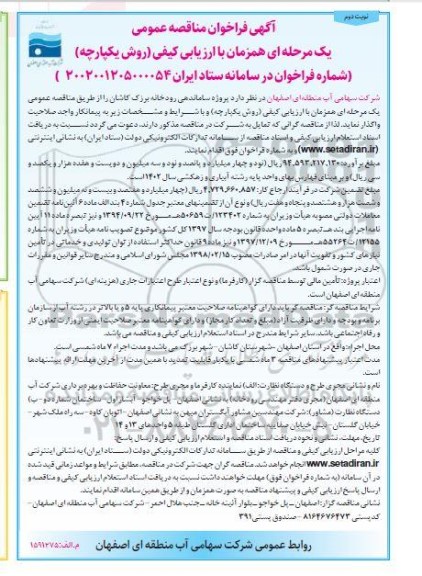 نوبت دوم
آگهی فراخوان مناقصه عمومی
یک مرحله ای همزمان با ارزیابی کیفی (روش یکپارچه)
(شماره فراخوان در سامانه ستاد ایران ۲۰۰۲۰۰۱۲۰۵۰۰۰۰۵۴)
شرکت سهامی آب منطقه‌ای اصفهان در نظر دارد پروژه ساماندهی رودخانه برزک کاشان را از طریق مناقصه عمومی
یک مرحله ای همزمان با ارزیابی کیفی (روش یکپارچه) و با شرایط و مشخصات زیر به پیمانکار واجد صلاحیت
واگذار نماید. لذا از مناقصه گرانی که تمایل به شرکت در مناقصه مذکور دارند، دعوت می گردد نسبت به دریافت
اسناد استعلام ارزیابی کیفی و اسناد مناقصه از سامانه تدارکات الکترونیکی دولت (ستاد ایران) به نشانی اینترنتی
(www.setadiran.ir) و به شماره فراخوان فوق اقدام نمایند.
مبلغ برآورد: ۹۴,۵۹۳,۲۱۷,۱۳۰ ریال (نود و چهار میلیارد و پانصد و نود و سه میلیون و دویست و هفده هزار و یکصد و
سی ریال) و بر مبنای فهارس بهای واحد پایه رشته آبیاری و زهکشی سال ۱۴۰۲ است.
مبلغ تضمین شرکت در فرآیند ارجاع کار: ۴,۷۲۹,۶۶۰,۸۵۷ ریال (چهار میلیارد و هفتصد و بیست و نه میلیون و ششصد
و شصت هزار و هشتصد و پنجاه و هفت ریال) و نوع آن از تضمینهای معتبر جدول شماره ۴ بند الف ماده ۶ آئین نامه تضمین
معاملات دولتی مصوبه هیأت وزیران به شماره ۱۲۳۴۰۲/ت۵۰۶۵۹هـ مورخ ۱۳۹۴/۰۹/۲۲ و نیز تبصره ماده ۱۱ آیین
نامه اجرایی بند هـ تبصره ۵ ماده واحده قانون بودجه سال ۱۳۹۷ کل کشور موضوع تصویب نامه هیأت وزیران به شماره
۱۴۱۵۵/ت۵۵۲۶۴هـ مورخ ۱۳۹۷/۰۲/۰۹ و نیز ماده ۹ قانون حداکثر استفاده از توان تولیدی و خدماتی در تأمین
نیازهای کشور و تقویت آنها در امر صادرات مصوب ۱۳۹۸/۰۲/۱۵ مجلس شورای اسلامی و مندرج سایر قوانین و مقررات
جاری در صورت شمول باشد.
اعتبار پروژه: تأمین مالی توسط مناقصه گزار (کارفرما) و نوع اعتبار طرح اعتبارات جاری (هزینه ای) شرکت سهامی آب
منطقه ای اصفهان است.
شرایط مناقصه گر: مناقصه گر باید دارای گواهینامه صلاحیت معتبر پیمانکاری پایه ۵ و یا بالاتر در رشته آب از سازمان
برنامه و بودجه و دارای ظرفیت آزاد (مبلغ و تعداد کار مجاز) و دارای گواهینامه معتبر صلاحیت ایمنی از وزارت تعاون کار
و رفاه اجتماعی باشد. سایر شرایط مندرج در اسناد استعلام ارزیابی کیفی و مناقصه می باشد.
محل اجراء: واقع در استان اصفهان - شهرستان کاشان - شهر برزک می باشد و مدت اجراء ۷ ماه شمسی است.
مدت اعتبار پیشنهادهای مناقصه: ۳ ماه شمسی با یکبار قابلیت تمدید با همین مدت از آخرین مهلت ارائه پیشنهادها
است.
نام و نشانی مجری طرح و دستگاه نظارت: الف) نماینده کارفرما و مجری طرح: معاونت حفاظت و بهره برداری شرکت آب
منطقه ای اصفهان (مجری دفتر مهندسی رودخانه) به نشانی اصفهان - پل خواجو - آبشار اول - ساختمان شماره دو - ب)
دستگاه نظارت (مشاور): شرکت مهندسین مشاور آبگستران میهن به نشانی اصفهان - اتوبان کاوه - سه راه ملک شهر -
خیابان گلستان - نبش خیابان صفاییه ساختمان اداری گلستان طبقه ۵ واحدهای ۱۳ و ۱۴
تاریخ، مهلت، نشانی و نحوه دریافت اسناد مناقصه و استعلام ارزیابی کیفی و ارسال پاسخ:
کلیه مراحل ارزیابی کیفی و مناقصه از طریق سامانه تدارکات الکترونیکی دولت (ستاد ایران) به نشانی اینترنتی
www.setadiran.ir انجام خواهد شد. مناقصه گران جهت شرکت در مناقصه، مطابق شرایط و مواعد زمانی قید شده
در آن سامانه (به شماره فراخوان فوق) مهلت خواهند داشت نسبت به دریافت اسناد استعلام ارزیابی کیفی و مناقصه و
ارسال پاسخ ارزیابی کیفی و پیشنهاد مناقصه به صورت همزمان و از طریق همین سامانه اقدام نمایند.
نشانی مناقصه گزار: اصفهان - پل خواجو - بلوار آئینه خانه - جنب هلال احمر - شرکت سهامی آب منطقه ای اصفهان -
کدپستی ۸۱۶۴۶۷۶۴۷۳ - صندوق پستی ۳۹۱
روابط عمومی شرکت سهامی آب منطقه ای اصفهان
م.الف: ۱۵۹۱۲۷۵